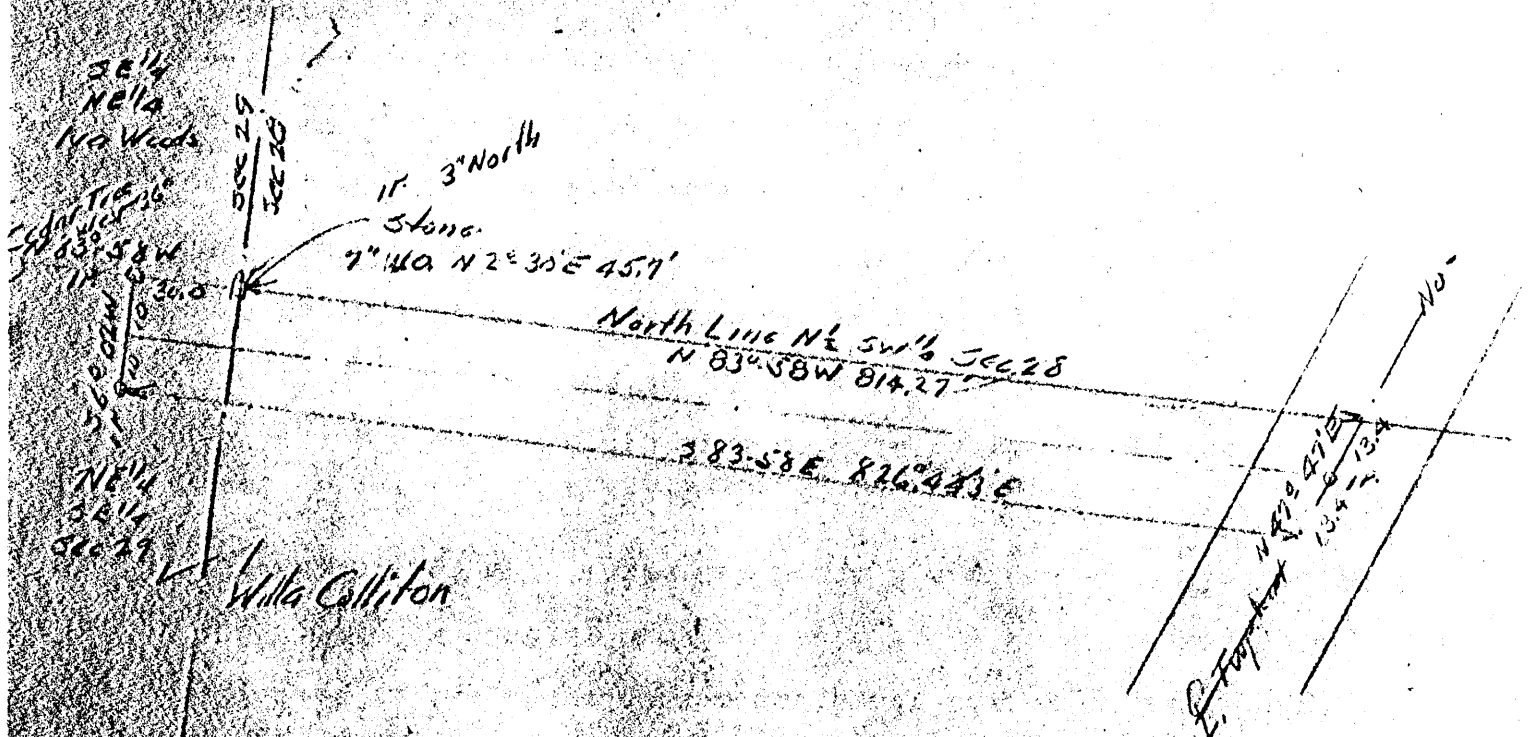 SE 1/4
NE 1/4
Iva Woods
Sec 29
Sec 28
ir. 3" North
Stone
7" W.O. N 2° 30' E 45.7'
N 83°-58 W
ir.
30.0
10
10
North Line N 1/2 SW 1/4 Sec. 28
N 83°-58 W 814.27
S 83-58 E
NE 1/4
SE 1/4
Sec 29
Willa Colliton
N 47° 47' E
13.4
13.4 ir.
No